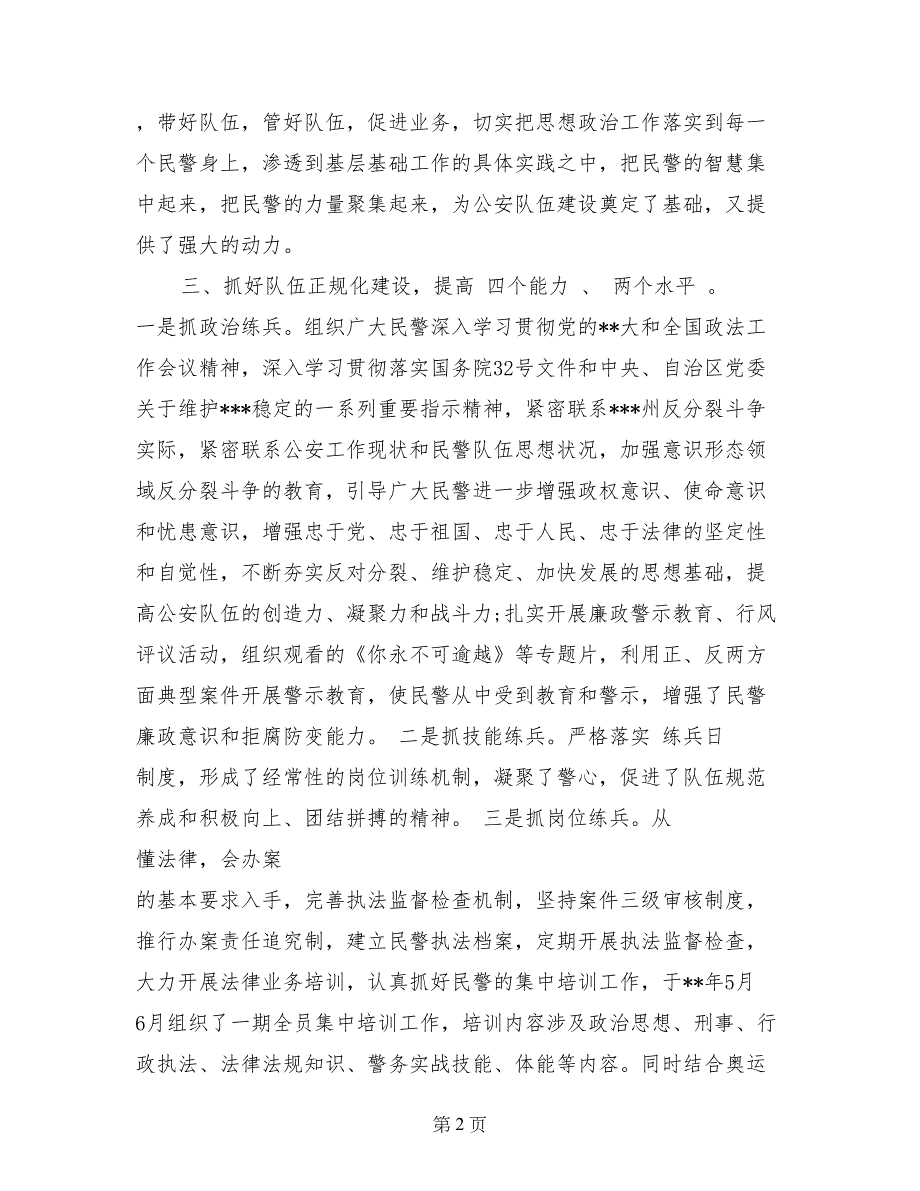 ，带好队伍，管好队伍，促进业务，切实把思想政治工作落实到每一
个民警身上，渗透到基层基础工作的具体实践之中，把民警的智慧集
中起来，把民警的力量聚集起来，为公安队伍建设奠定了基础，又提
供了强大的动力。
三、抓好队伍正规化建设，提高 四个能力 、 两个水平 。
一是抓政治练兵。组织广大民警深入学习贯彻党的**大和全国政法工
作会议精神，深入学习贯彻落实国务院32号文件和中央、自治区党委
关于维护***稳定的一系列重要指示精神，紧密联系***州反分裂斗争
实际，紧密联系公安工作现状和民警队伍思想状况，加强意识形态领
域反分裂斗争的教育，引导广大民警进一步增强政权意识、使命意识
和忧患意识，增强忠于党、忠于祖国、忠于人民、忠于法律的坚定性
和自觉性，不断夯实反对分裂、维护稳定、加快发展的思想基础，提
高公安队伍的创造力、凝聚力和战斗力;扎实开展廉政警示教育、行风
评议活动，组织观看的《你永不可逾越》等专题片，利用正、反两方
面典型案件开展警示教育，使民警从中受到教育和警示，增强了民警
廉政意识和拒腐防变能力。 二是抓技能练兵。严格落实 练兵日
制度，形成了经常性的岗位训练机制，凝聚了警心，促进了队伍规范
养成和积极向上、团结拼搏的精神。 三是抓岗位练兵。从
懂法律，会办案
的基本要求入手，完善执法监督检查机制，坚持案件三级审核制度，
推行办案责任追究制，建立民警执法档案，定期开展执法监督检查，
大力开展法律业务培训，认真抓好民警的集中培训工作，于**年5月
6月组织了一期全员集中培训工作，培训内容涉及政治思想、刑事、行
政执法、法律法规知识、警务实战技能、体能等内容。同时结合奥运
第 2 页